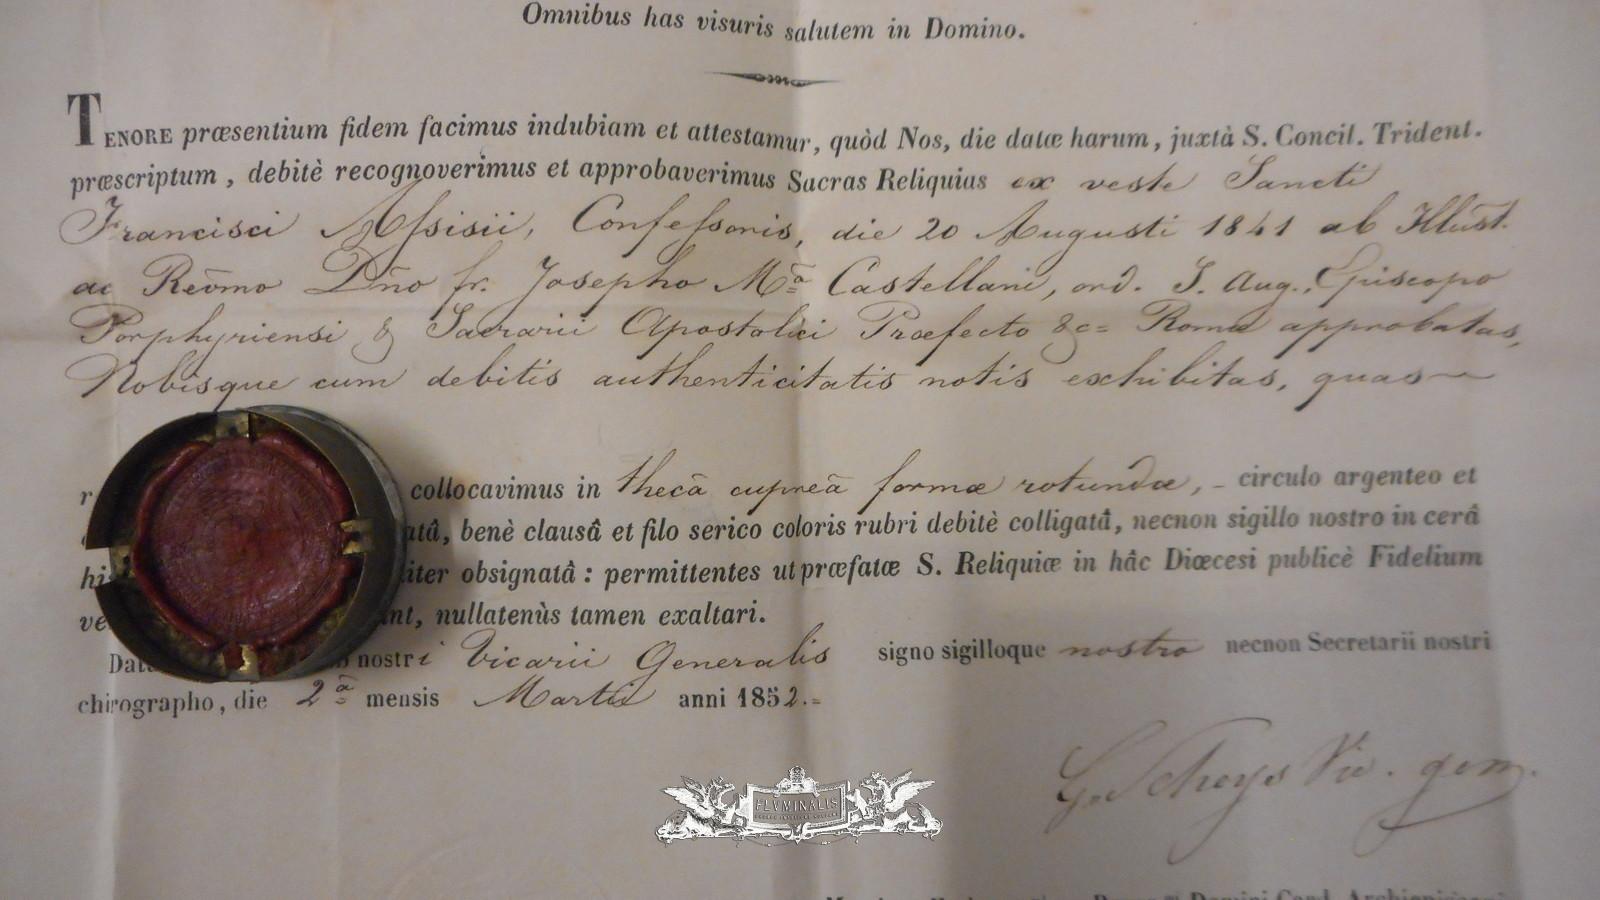 Omnibus has visuris salutem in Domino.
TENORE præsentium fidem facimus indubiam et attestamur, quòd Nos, die datæ harum, juxtà S. Concil. Trident.
præscriptum, debitè recognoverimus et approbaverimus Sacras Reliquias ex veste Sancti
Francisci Assisii, Confessoris, die 20 Augusti 1841 ab Illust.
ac Reṽmo Dño fr. Josepho Mª Castellani, ord. S. Aug., Episcopo
Porphyriensi & Sacrarii Apostolici Præfecto &c= Romæ approbatas,
Nobisque cum debitis authenticitatis notis exhibitas, quas
collocavimus in thecâ cupreâ formæ rotundæ, - circulo argenteo et
atâ, benè clausâ et filo serico coloris rubri debitè colligatâ, necnon sigillo nostro in cerâ
his iter obsignatâ : permittentes ut præfatæ S. Reliquiæ in hâc Diœcesi publicè Fidelium
ve ant, nullatenùs tamen exaltari.
Dat nostri Vicarii Generalis signo sigilloque nostro necnon Secretarii nostri
chirographo, die 2ª mensis Martii anni 1852.=
Vic. gen.
FLVMINALIS